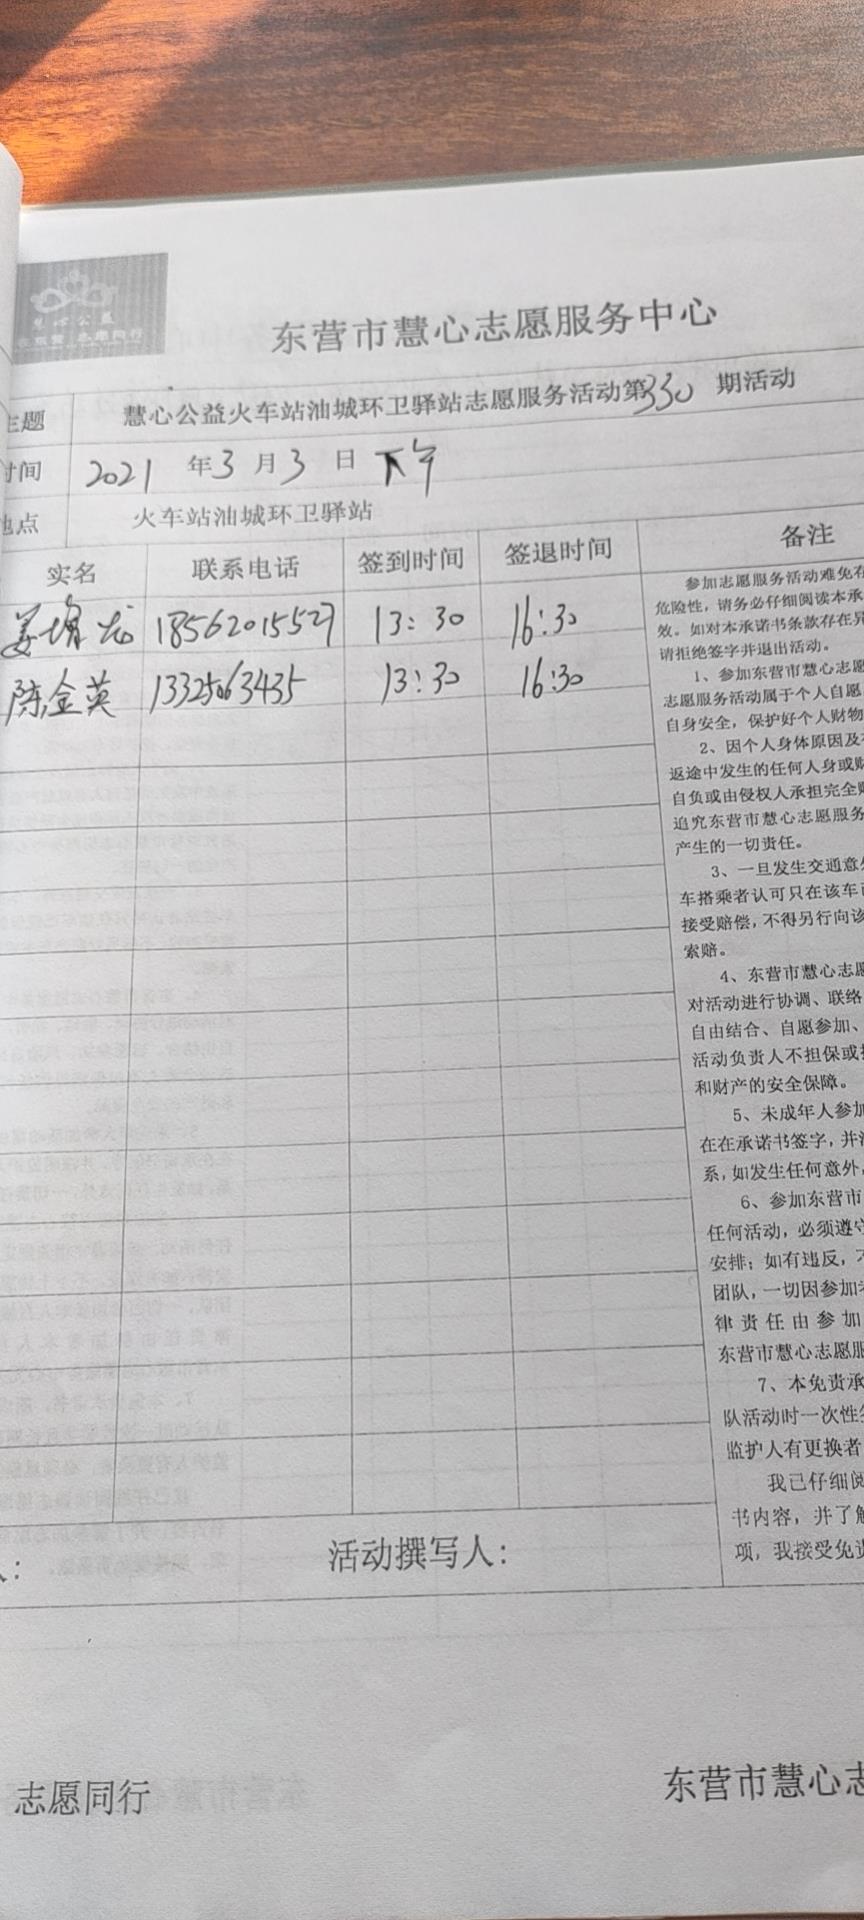 慧心公益
在东营 志愿同行
东营市慧心志愿服务中心
主题 慧心公益火车站油城环卫驿站志愿服务活动第330期活动
时间 2021年3月3日 下午
地点 火车站油城环卫驿站
实名 联系电话 签到时间 签退时间 备注
姜增龙 18562015527 13:30 16:30
陈金英 13325063435 13:30 16:30
参加志愿服务活动难免存
危险性，请务必仔细阅读本承
效。如对本承诺书条款存在异
请拒绝签字并退出活动。
1、参加东营市慧心志愿
志愿服务活动属于个人自愿
自身安全，保护好个人财物
2、因个人身体原因及
返途中发生的任何人身或财
自负或由侵权人承担完全
追究东营市慧心志愿服务
产生的一切责任。
3、一旦发生交通意外
车搭乘者认可只在该车
接受赔偿，不得另行向该
索赔。
4、东营市慧心志愿
对活动进行协调、联络
自由结合、自愿参加、
活动负责人不担保或
和财产的安全保障。
5、未成年人参加
在在承诺书签字，并
系，如发生任何意外，
6、参加东营市
任何活动，必须遵守
安排；如有违反，
团队，一切因参加
律责任由参加
东营市慧心志愿服
7、本免责承
队活动时一次性
监护人有更换者
我已仔细阅
书内容，并了解
项，我接受免责
人：
活动撰写人：
志愿同行
东营市慧心志